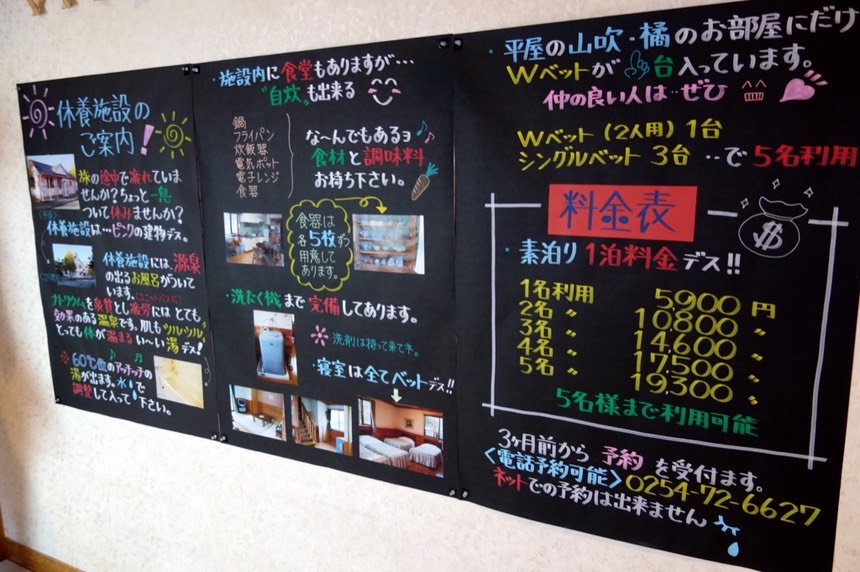 休養施設の
ご案内!
旅の途中で疲れていま
せんか?ちょっと一息
ついて休みませんか?
休養施設は…ピンクの建物デス。
休養施設には、源泉
の出るお風呂がついて
います。
ナトリウムを泉質とし疲労にはとても
効果のある温泉です。肌もツルツル。
とっても体が温まるい〜い湯デス!
※60℃位のアッチッチの
湯が出ます。水で
調整して入って下さい。
・施設内に食堂もありますが…
"自炊"も出来る
鍋
フライパン
炊飯器
電気ポット
電子レンジ
食器
な〜んでもあるヨ
食材と調味料
お持ち下さい。
食器は
各5枚ずつ
用意して
あります。
・洗たく機まで完備してあります。
※洗剤は持って来てネ。
・寝室は全てベットデス!!
・平屋の山吹・橘のお部屋にだけ
Wベットが1台入っています。
仲の良い人は…ぜひ
Wベット(2人用)1台
シングルベット 3台 ‥で5名利用
料金表
・素泊り 1泊料金デス!!
1名利用 5,900円
2名〃 10,800〃
3名〃 14,600〃
4名〃 17,500〃
5名〃 19,300〃
5名様まで利用可能
3ヶ月前から 予約 を受付ます。
<電話予約可能>0254-72-6627
ネットでの予約は出来ません